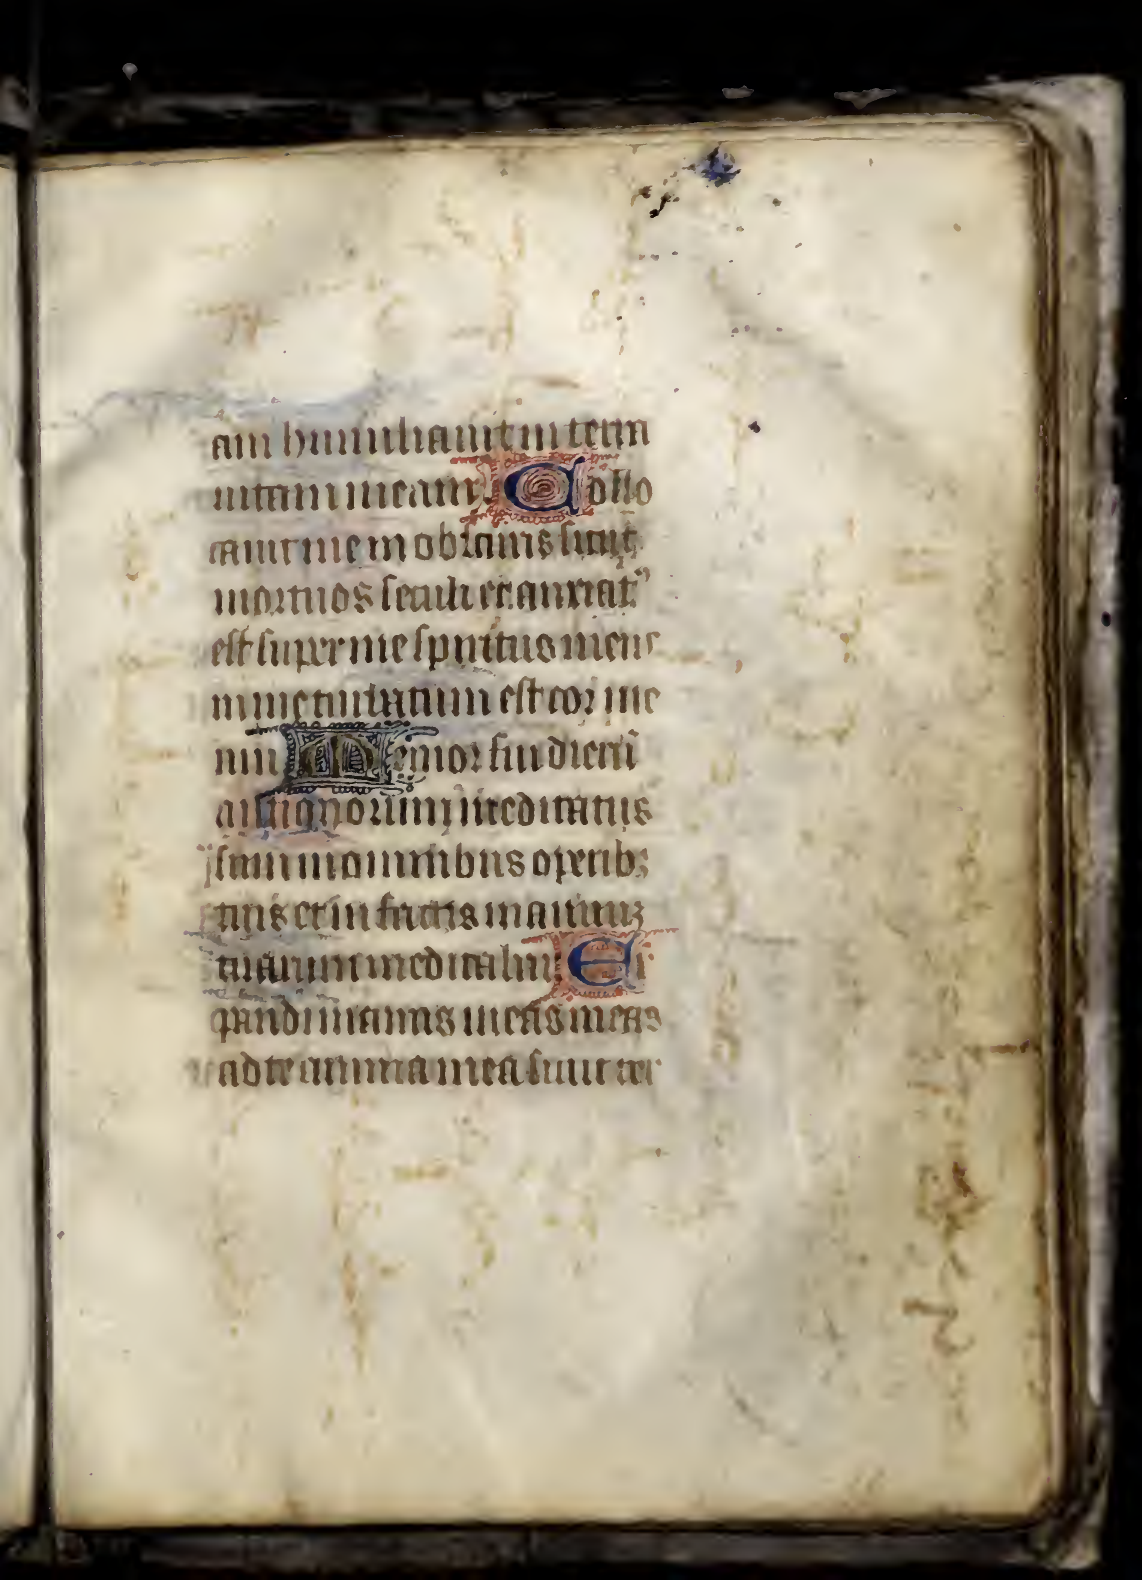 am humiliauit in terra
uitam meam. Collo
cauit me in obscuris sicut
mortuos seculi et anxiat⁹
est super me spiritus meus
in me turbatum est cor me
um Memor fui dierū
antiquorum meditatus
sum in omnibus operibꝫ
tuis et in factis manuuꝫ
tuarum meditabar. Ex
pandi manus meas
ad te anima mea sicut ter